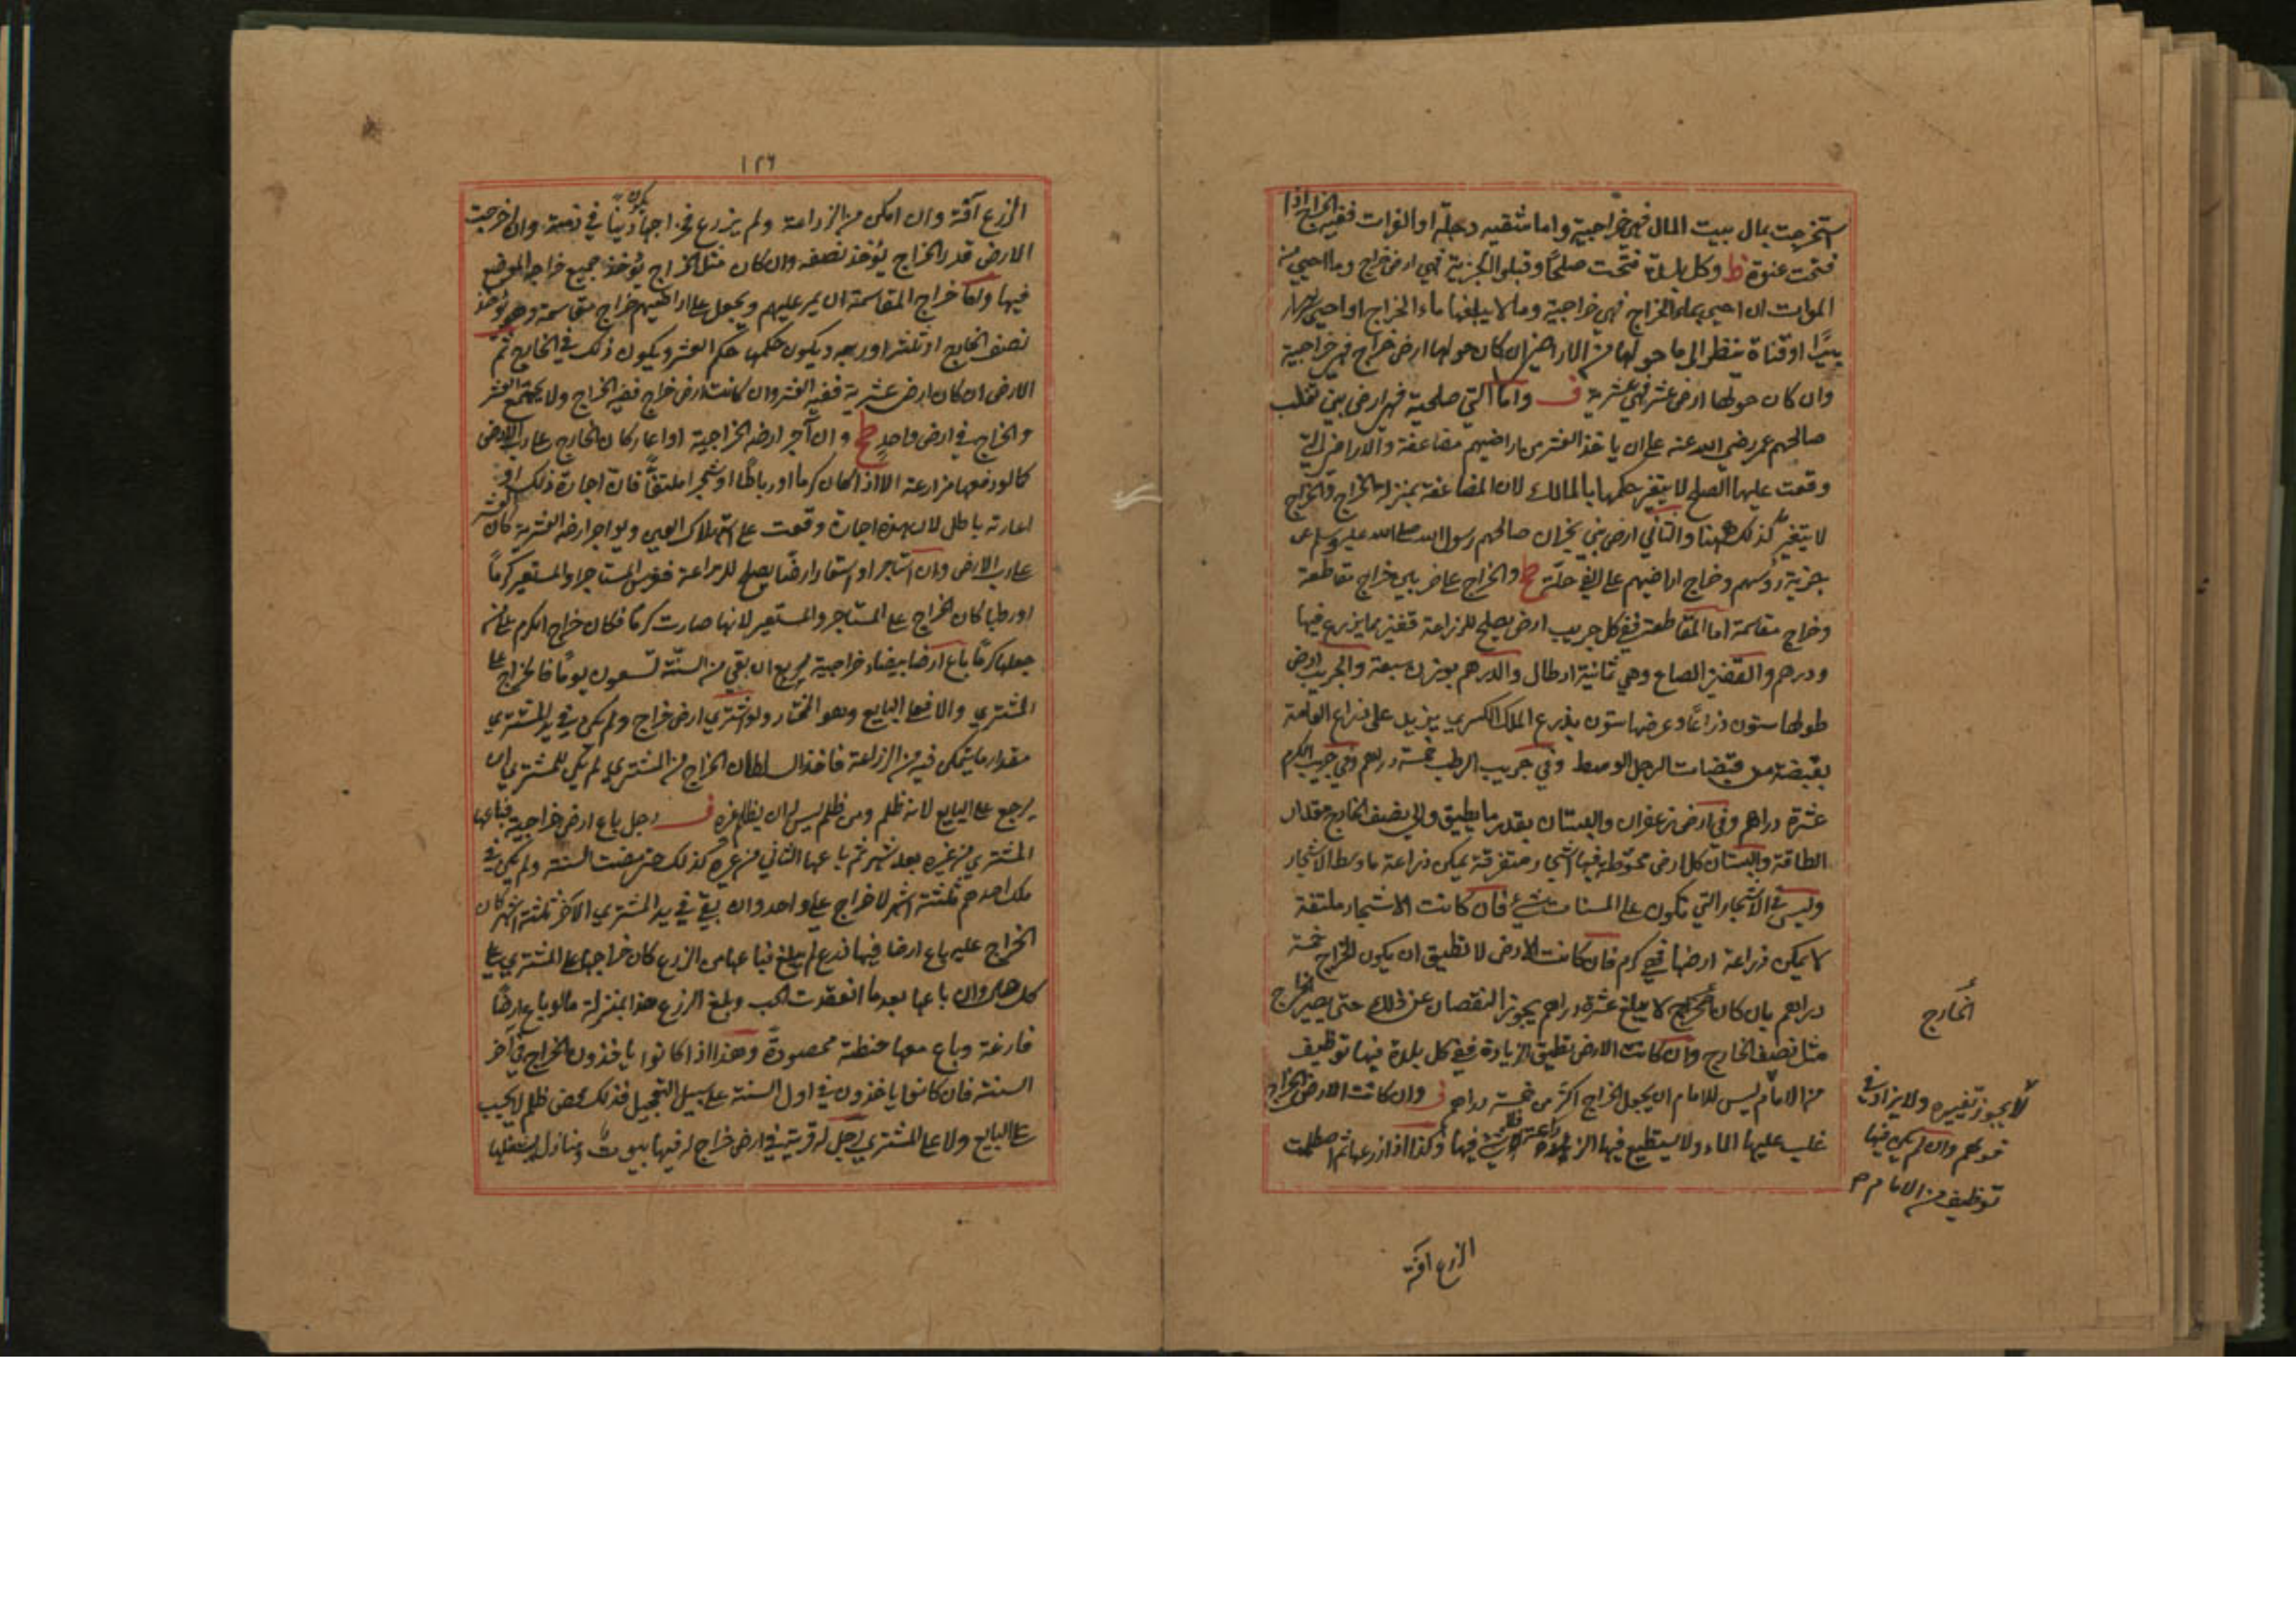 استخرجت بمال بيت المال فهي خراجية واما ما تسقيه دجلة او الفرات ففيه الخراج اذا
فتحت عنوة ظ وكل بلدة فتحت صلحًا وقبلوا الجزية فهي ارض خراج وما احيي من
الموات ان احيي بماء الخراج فهي خراجية وما لا يبلغها ماء الخراج او احيي بها
بيرًا او قناة ينظر الى ما حولها من الاراضي ان كان حولها ارض خراج فهي خراجية
وان كان حولها ارض عشر فهي عشرية ف واما التي صلحية فهي ارض بني تغلب
صالحهم عمر رضي الله عنه على ان ياخذ العشر من اراضيهم مضاعفة والاراضي التي
وقعت عليها الصلح لا يتغير حكمها بالمالك لان المضاعفة بمنزلة الخراج والخراج
لا يتغير كذلك ههنا والثاني ارض بني نجران صالحهم رسول الله صلى الله عليه وسلم عن
جزية رؤسهم وخراج اراضيهم على الفي حلة ح والخراج على ضربين خراج مقاطعة
وخراج مقاسمة اما المقاطعة ففي كل جريب ارض يصلح للزراعة قفيز مما يزرع فيها
ودرهم والقفيز الصاع وهي ثمانية ارطال والدرهم بوزن سبعة والجريب ارض
طولها ستون ذراعًا وعرضها ستون بذرع الملك الكسرى يزيد على ذراع العامة
بقبضة من قبضات الرجل الوسط وفي جريب الرطب خمسة دراهم وفي جريب الكرم
عشرة دراهم وفي ارض زعفران والبستان بقدر ما يطيق والى نصف الخارج مقدار
الطاقة والبستان كل ارض محوطة فيها اشجار متفرقة يمكن زراعة ما وسط الاشجار
وليس في الاشجار التي تكون على المسنات شيء فان كانت الاشجار ملتفة
لا يمكن زراعة ارضها فهي كرم فان كانت الارض لا تطيق ان يكون الخراج خمسة
دراهم بان كان الخراج لا يبلغ عشرة دراهم يجوز النقصان عن ذلك حتى يصير الخراج
مثل نصف الخارج وان كانت الارض تطيق الزيادة ففي كل بلدة فيها توظيف
من الامام ليس للامام ان يجعل الخراج اكثر من خمسة دراهم ف وان كانت الارض الخراج
غلب عليها الماء ولا يستطيع فيها الزراعة فيها وكذا اذا زرعها ثم اصطلمت
الخارج
لا يجوز تغييره ولا يزاد في
قولهم وان لم يكن فيها
توظيف من الامام م
الزرع آفة
١٢٦
الزرع آفة وان امكن من الزراعة ولم يزرع فخراجها يكون دينًا في ذمته وان اخرجت
الارض قدر الخراج يؤخذ نصفه وان كان مثلي الخراج يؤخذ جميع خراج الموضع
فيها واما خراج المقاسمة ان يمر عليهم ويجعل على اراضيهم خراج مقاسمة وهو يؤخذ
نصف الخارج او ثلثه او ربعه ويكون حكمها حكم العشر ويكون ذلك في الخارج ثم
الارض ان كان ارض عشرية ففيه العشر وان كانت ارض خراج ففيه الخراج ولا يجتمع العشر
والخراج في ارض واحد ح وان آجر ارضه الخراجية او اعار كان الخراج على رب الارض
كما لو دفعها مزارعة الا اذا كان كرما او رباطًا او شجرا ملتفًّا فان اجارة ذلك او
اعارته باطل لان هذه اجارة وقعت على استهلاك العين ولو اجر ارضه العشرية كان العشر
على رب الارض وان استاجر او استعار ارضًا يصلح للزراعة فغرس المستاجر او المستعير كرمًا
او رطبا كان الخراج على المستاجر والمستعير لانها صارت كرمًا فكان خراج الكرم على من
جعلها كرمًا باع ارضا بيضاء خراجية ان بقي من السنة تسعون يومًا فالخراج على
المشتري والا فعلى البايع وهو المختار ولو اشترى ارض خراج ولم يكن في يد المشتري
مقدار ما يتمكن فيه من الزراعة فاخذ السلطان الخراج من المشتري لم يكن للمشتري ان
يرجع على البايع لانه ظلم ومن ظلم ليس له ان يظلم غيره ف رجل باع ارض خراجية فباعها
المشتري من غيره بعد شهر ثم باعها الثاني من غيره كذلك حتى مضت السنة ولم يكن في
ملك احدهم ثلثة اشهر لا خراج على واحد وان بقي في يد المشتري الآخر ثلثة اشهر كان
الخراج عليه باع ارضا فيها زرع لم يبلغ فباعها مع الزرع كان خراجها على المشتري على
كل حال وان باعها بعد ما انعقدت الحب وبلغ الزرع هذا بمنزلة ما لو باع ارضًا
فارغة وباع معها حنطة محصودة وهذا اذا كانوا ياخذون الخراج في آخر
السنة فان كانوا ياخذون في اول السنة على سبيل التعجيل فذلك محض ظلم لا يجب
على البايع ولا على المشتري رجل له قرية في ارض خراج له فيها بيوت ومنازل يستغلها